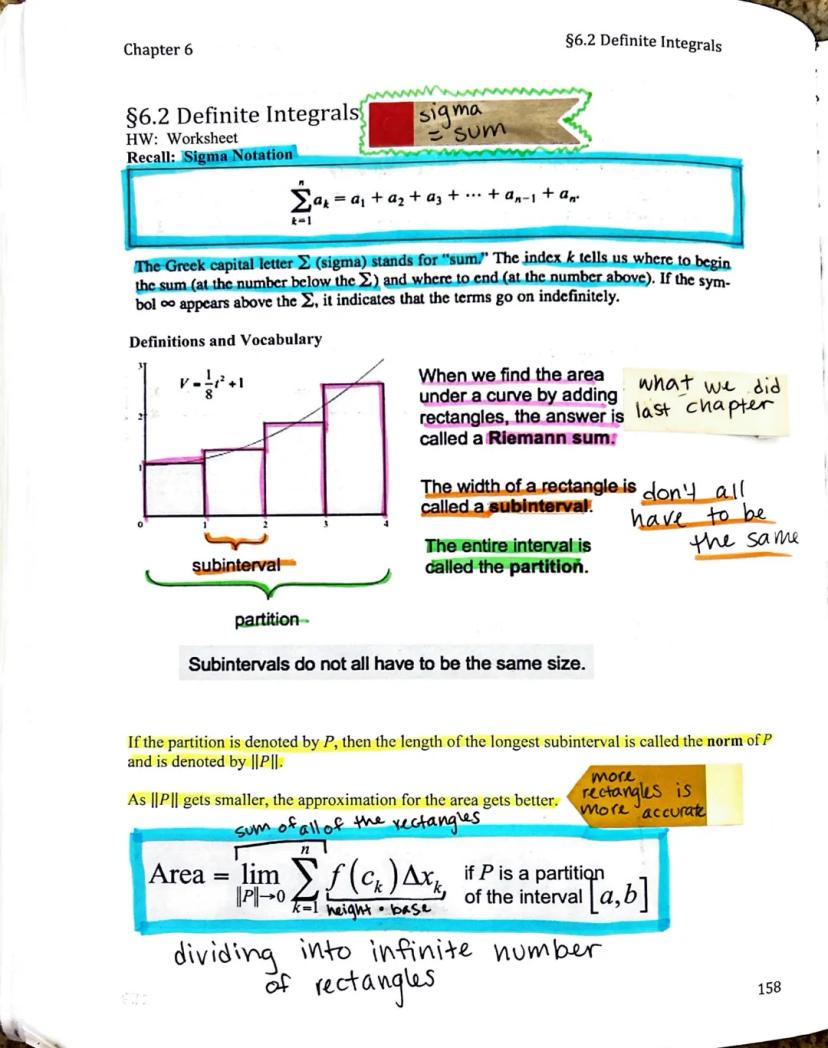 Chapter 6
§6.2 Definite Integrals
§6.2 Definite Integrals
sigma
= sum
HW: Worksheet
Recall: Sigma Notation
n
∑ aₖ = a₁ + a₂ + a₃ + ··· + aₙ₋₁ + aₙ.
k=1
The Greek capital letter ∑ (sigma) stands for "sum." The index k tells us where to begin
the sum (at the number below the ∑) and where to end (at the number above). If the sym-
bol ∞ appears above the ∑, it indicates that the terms go on indefinitely.
Definitions and Vocabulary
V = 1/8 t² + 1
3
2
1
0 1 2 3 4
subinterval
partition
When we find the area
under a curve by adding
rectangles, the answer is
called a Riemann sum.
what we did
last chapter
The width of a rectangle is
called a subinterval.
don't all
have to be
the same
The entire interval is
called the partition.
Subintervals do not all have to be the same size.
If the partition is denoted by P, then the length of the longest subinterval is called the norm of P
and is denoted by ||P||.
As ||P|| gets smaller, the approximation for the area gets better.
more
rectangles is
more accurate
sum of all of the rectangles
n
Area = lim ∑ f(cₖ)Δxₖ, if P is a partition
||P||→0 k=1 height · base of the interval [a,b]
dividing into infinite number
of rectangles
158